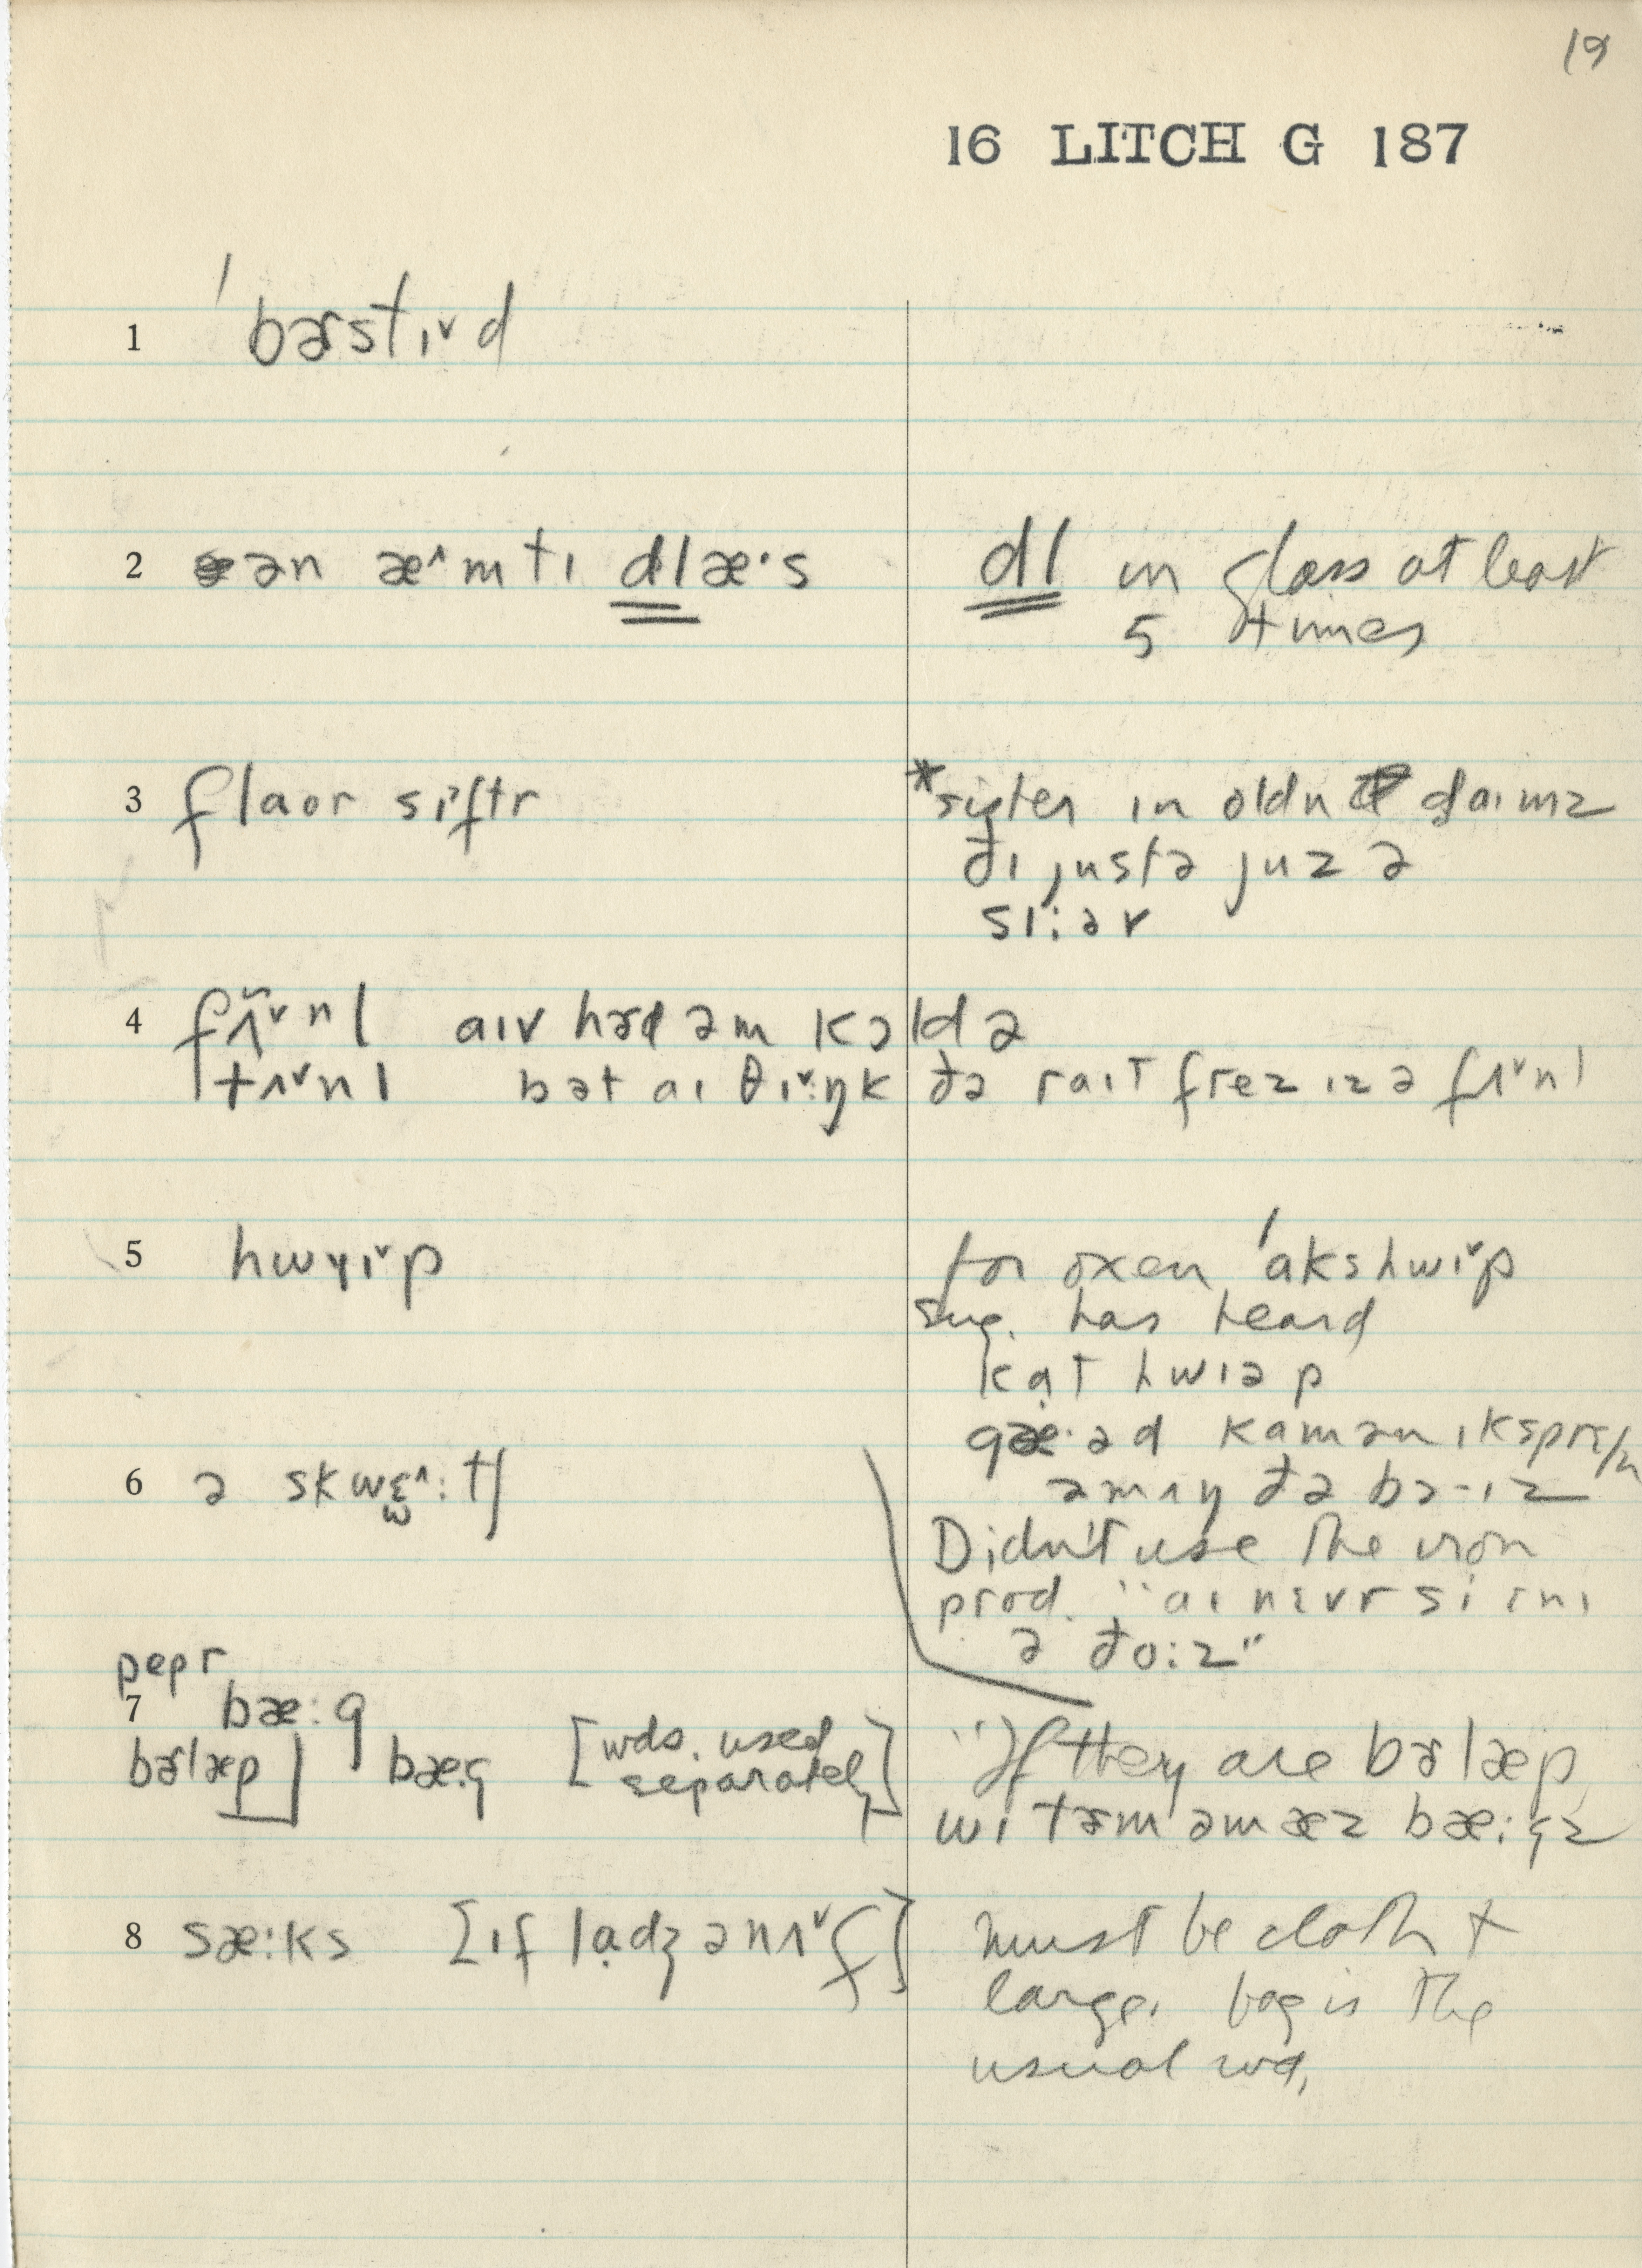 19
16 LITCH G 187
1 ˈbɚstɪ˅d
2 ən æ˄mtɪ dlæ·s
dl in glass at least
5 times
3 flaor sɪftr
*sister in oldn daɪmz
ðɪ justə juz ə
sɪ:ər
4 fʌ̃˅nl aɪv hɚd əm kɔld ə
tʌ˅nl bət aɪ θɪ˅:ŋk ðə raɪt frez ɪz ə fʌ˅nl
5 hwɪ˅p
for oxen ˈakshwɪ˅p
Sug. has heard
kạt hwɪəp
gæ·əd kamən ɪksprɛʃn
əmʌŋ ðə bɔ-ɪz
6 ə skwɛ˄:tʃ
Didn't use the iron
prod. "aɪ nɛvr si ɛnɪ
ə ðo:z"
pepr
7 bæ:g
bɚlæp] bæ:g [wds. used
separately]
"If they are bɚlæp
wɪ tɚm əm æz bæ:gz
8 sæ:ks [ɪf lạdʒ ənʌ˅f]
must be cloth +
large. bag is the
usual wd.